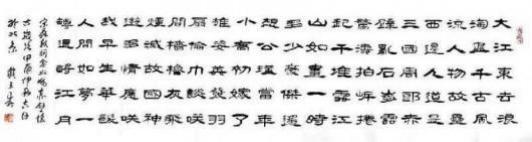 大江東去浪
淘盡千古風
流人物故壘
西邊人道是
三國周郎赤
壁亂石崩雲
驚濤拍岸捲
起千堆雪江
山如畫一時
多少豪傑遙
想公瑾當年
小喬初嫁了
雄姿英發羽
扇綸巾談笑
間檣櫓灰飛
煙滅故國神
遊多情應笑
我早生華髮
人間如夢一
尊還酹江月